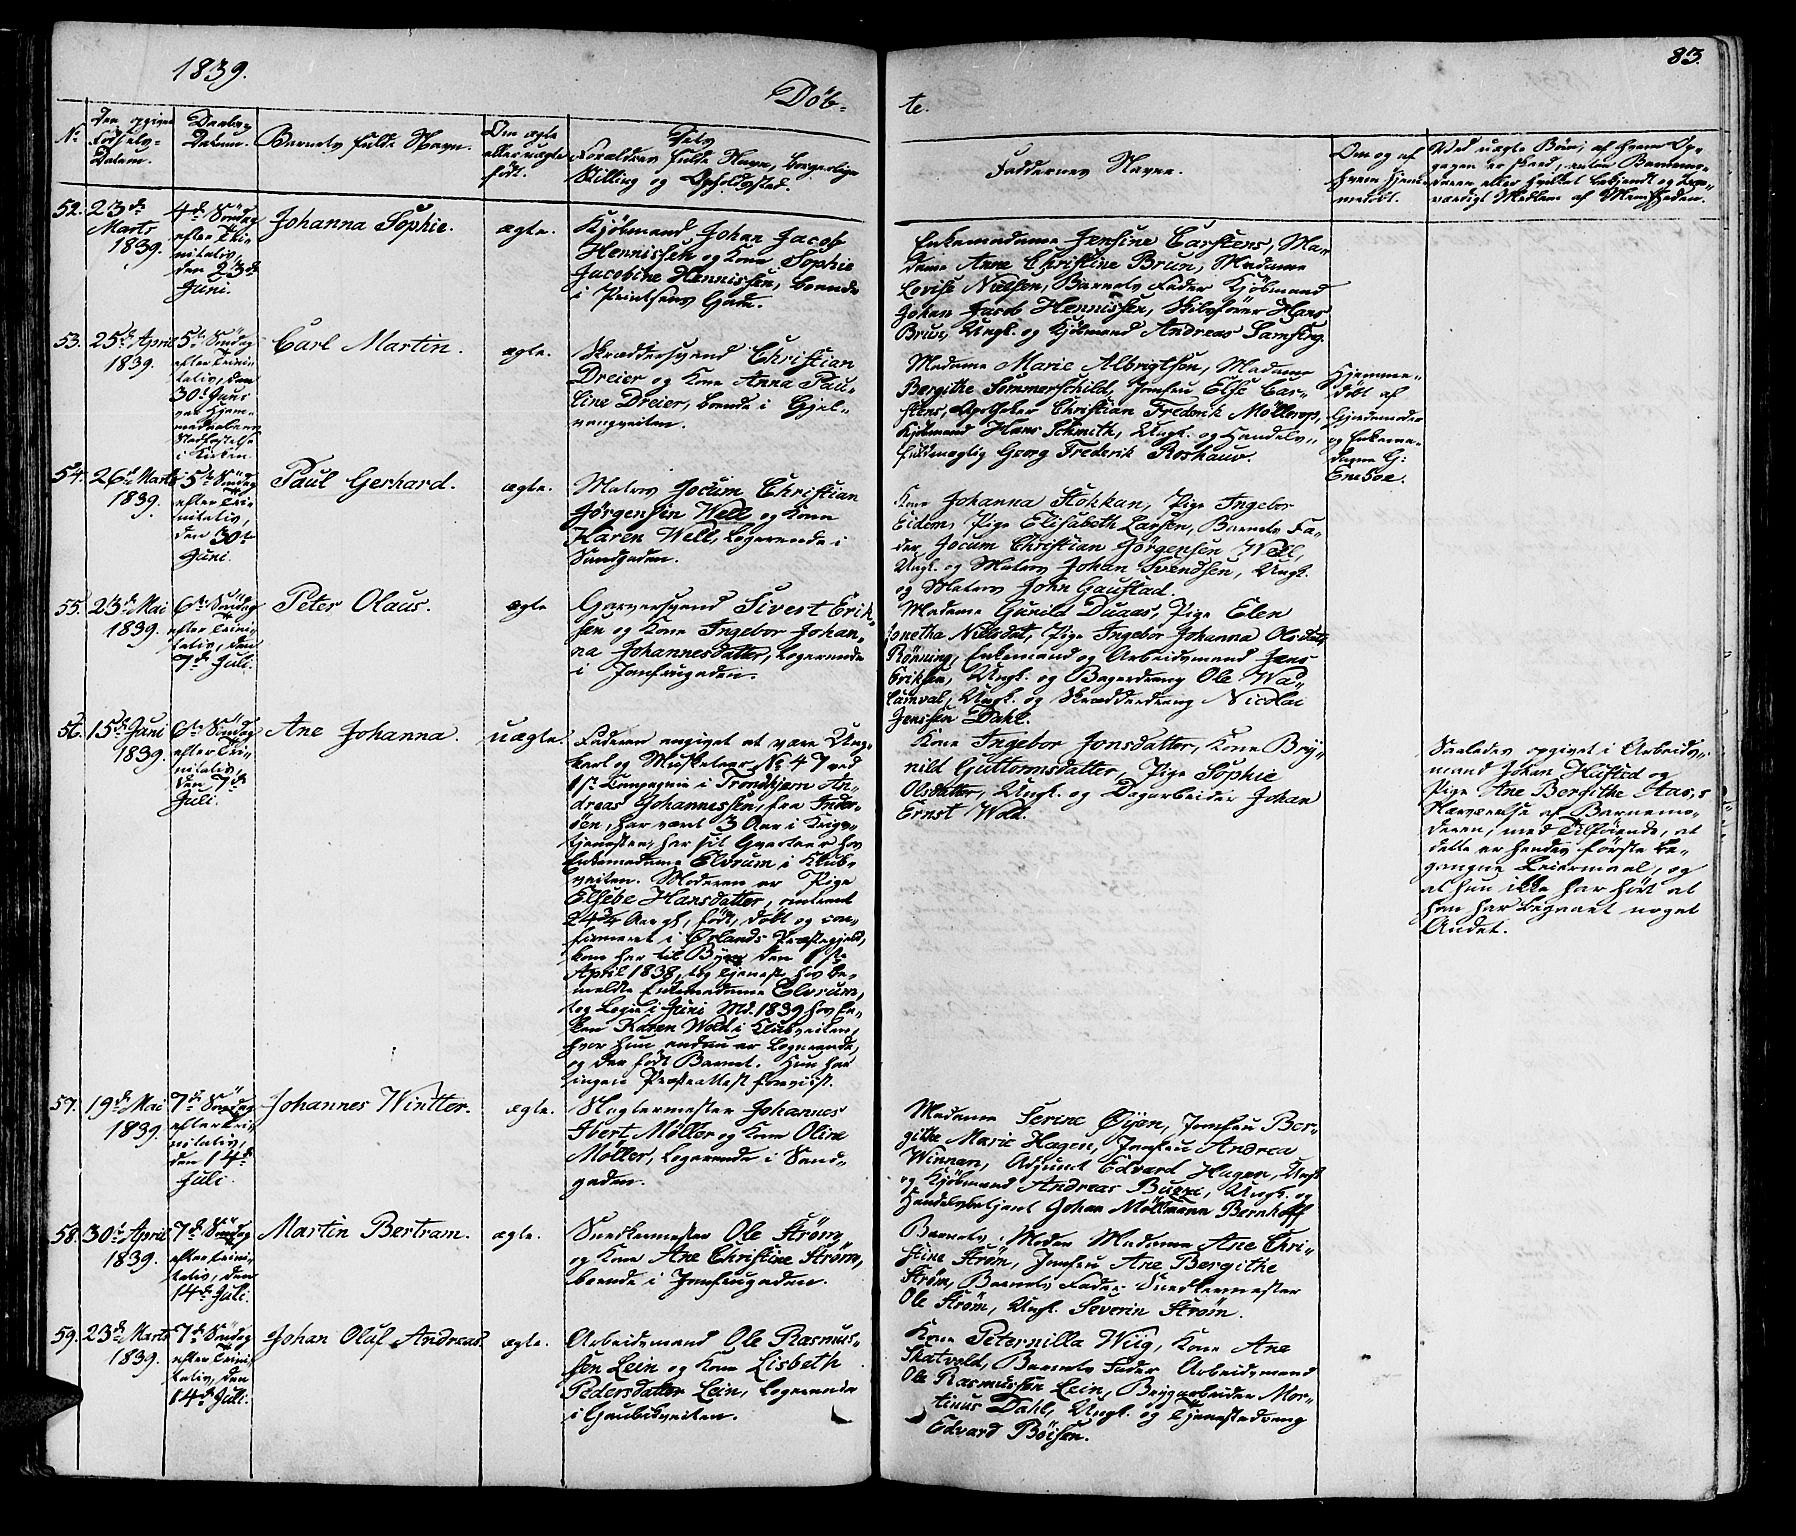 1839.
Døb-
te.
83.
No
Den opgivne
Fødsels-
Datum.
Daabs-
Datum.
Barnets fulde Navn.
Om ægte
eller uægte
født.
Forældres fulde Navn, borgerlige
Stilling og Opholdssted.
Faddernes Navne.
Om og af
hvem hjemmedøbt.
Ved uægte Børn; af hvem Op-
gaven er skeed, enten Barnemo-
deren eller hvilket bekjendt og tro-
værdigt Medlem af Menigheden.
52.
23de
Marts
1839.
4de Søndag
efter Tri-
nitatis,
den 23de
Juni.
Johanna Sophie.
ægte.
Kjøbmand Johan Jacob
Hennissen og Kone Sophie
Jacobine Hennissen, boende
i Printsens Gade.
Enkemadame Jensine Carstens, Ma-
dame Anne Christine Brun, Madame
Lovise Nielsen, Barnets Fader Kjøbmand
Johan Jacob Hennissen, Skibsfører Hans
Brun, Ungk. og Kjøbmand Andreas
53.
25de April
1839.
5te Søndag
efter Trini-
tatis, den
30te Juni
ved Hjem-
medaabens
Stadfæstelse
i Kirken.
Carl Martin.
ægte.
Skræddersvend Christian
Dreier og Kone Anna Pau-
line Dreier, boende i Gjel-
vangveiten.
Madame Marie Albrigtson, Madame
Bergithe Sommerschild, Jomfru Else Car-
stens, Apotheker Christian Frederik Möllerop,
Kjøbmand Hans Schmith, Ungk. og Handels-
fuldmægtig Georg Frederik Roshauw.
Hjemme-
døbt af
Gjordemoder
og Enkema-
dame G:
Eneboe.
54.
26de Marts
1839.
5te Søndag
efter Tri-
nitatis,
den 30te
Juni.
Paul Gerhard.
ægte.
Matros Jocum Christian
Jørgensen Well og Kone
Karen Well, logerende i
Sandgaden.
Kone Johanna Stokkan, Pige Ingebor
Eidem, Pige Elisabeth Larsen, Barnets Fa-
der Jocum Christian Jørgensen Well,
Ungk. og Matros Johan Svendsen, Ungk.
og Matros John Gaustad.
55.
23de Mai
1839.
6te Søndag
efter Trini-
tatis, den
7de Juli.
Peter Olaus.
ægte
Garversvend Sivert Erik-
sen og Kone Ingebor Johan-
na Johannesdatter, logerende
i Jomfrugaden.
Madame Gunild Duaas, Pige Elen
Jonetha Nielsdat, Pige Ingebor Johanna Olsdat.
Rønning, Enkemand og Arbeidsmand Jens
Eriksen, Ungk. og Bagerdreng Ole Wad-
lumval, Ungk. og Skrædderdreng Nicolai
Jenssen Dahl.
56.
15de Juni
1839.
6te Søndag
efter Tri-
nitatis,
den 7de
Juli.
Ane Johanna.
uægte.
Faderen angivet at være Ung-
karl og Musketeer No 47 ved
1ste Compagnie i Trondhjem An-
dreas Johannessen, fra Inder-
øen, har været 3 Aar i Krigs-
tjenesten, har sit Qvarteer hos
Enkemadame Elvrum i Klub-
veiten. Moderen er Pige
Elsebe Hansdatter, omtrent
24 Aar gl., født, døbt og con-
firmeret i Ørlands Præstegjeld,
kom her til Byen den 1ste
April 1838, tog Tjeneste hos be-
meldte Enkemadame Elvrum,
tog Logis i Juni Md. 1839 hos En-
ken Karen Wold i Klubveiten,
hvor hun endnu er logerende,
og der født Barnet. Hun har
ingen Præsteattest foreviist.
Kone Ingebor Jonsdatter, Kone Bry-
nild Guttormsdatter, Pige Sophie
Olsdatter, Ungk. og Dagarbeider Johan
Ernst Wold.
Saaledes opgivet i Arbeids-
mand Johan Husted og
Pige Ane Bergithe Aas;s
Nærværelse af Barnemo-
deren, med Tilføiende, at
dette er hendes første be-
gangne Leiermaal, og
at hun ikke har hørt at
han har begaaet noget
Andet.
57.
19de Mai
1839.
7de Søndag
efter Tri-
nitatis,
den 14de
Juli.
Johannes Wintter.
ægte.
Slagtermester Johannes
Ivert Möller og Kone Oline
Möller, logerende i Sand-
gaden.
Madame Serine Øijen, Jomfru Ber-
githe Marie Hagen, Jomfru Andrea
Winnan, Adjunct Edvard Hagen, Ungk.
og Kjøbmand Andreas Buaae, Ungk. og
Handelsbetjent Johan Möllmann Bernhoff
58.
30te April
1839.
7de Søndag
efter Trini-
tatis, den
14de Juli.
Martin Bertram.
ægte.
Snedkermester Ole Strøm
og Kone Ane Christine Strøm,
boende i Jomfrugaden.
Barnets Moder Madame Ane Chri-
stine Strøm, Jomfru Ane Bergithe
Strøm, Barnets Fader Snedkermester
Ole Strøm, Ungk. Severin Strøm.
59.
23de Marts
1839.
7de Søndag
efter Trini-
tatis, den
14de Juli.
Johan Oluf Andreas.
ægte.
Arbeidsmand Ole Rasmus-
sen Lein og Kone Lisbeth
Pedersdatter Lein, logerende
i Gaubækveiten.
Kone Peternilla Wiig, Kone Ane
Skatvold, Barnets Fader Arbeidsmand
Ole Rasmussen Lein, Brygarbeider Mor-
tinus Dahl, Ungk. og Tjenestedreng
Edvard Böisen.